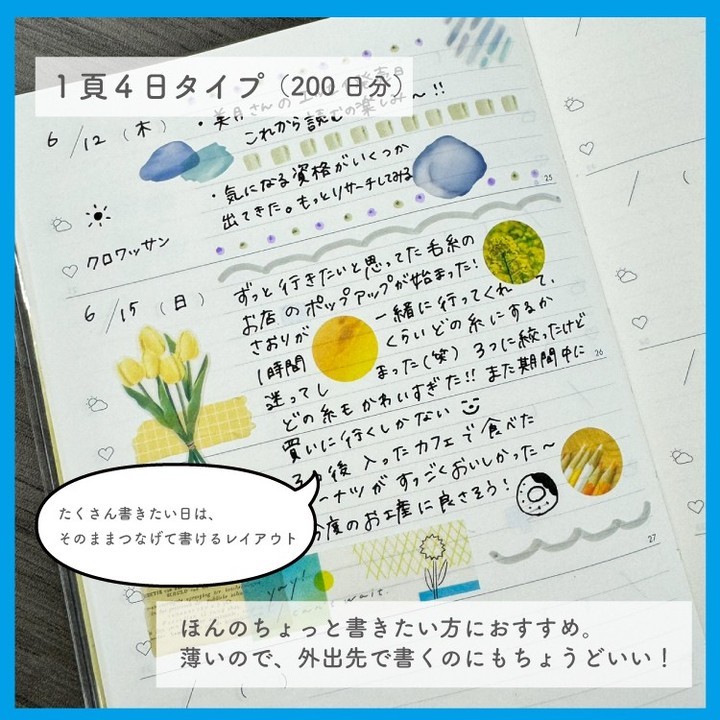 1頁4日タイプ（200日分）
6/12（木）
・美月さんの
これから読むの楽しみ〜!!
・気になる資格がいくつか
出てきた。もっとリサーチしてみる
25
クロワッサン
6/15（日）
ずっと行きたいと思ってた毛糸の
お店のポップアップが始まった!
さおりが 一緒に行ってくれて、
1時間 くらいどの糸にするか
迷ってし まった(笑) 3つに絞ったけど
26
どの糸もかわいすぎた!! また期間中に
買いに行くしかない
後入ったカフェで食べた
ーナツがすっごくおいしかった〜
度のお土産に良さそう!
27
たくさん書きたい日は、
そのままつなげて書けるレイアウト
yay!
wait.
ほんのちょっと書きたい方におすすめ。
薄いので、外出先で書くのにもちょうどいい！